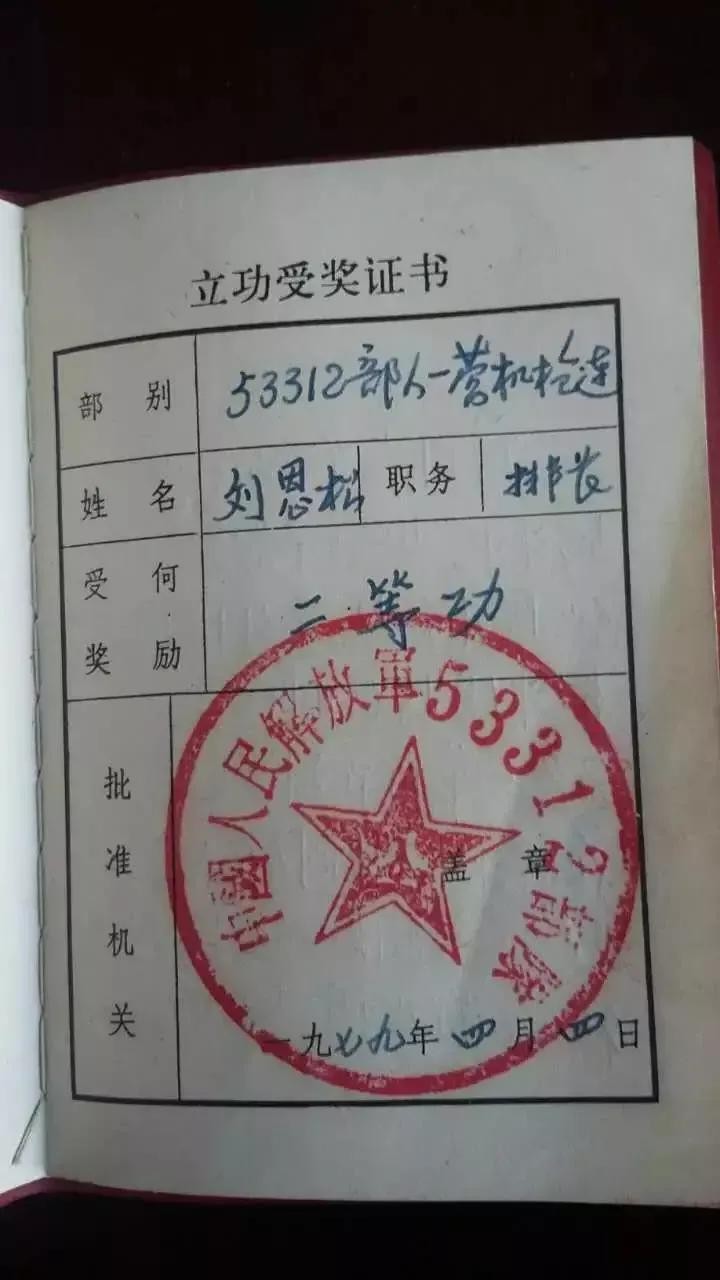 立功受奖证书
部别 53312部队一营机枪连
姓名 刘恩松 职务 排长
受何奖励 二等功
批准机关
中國人民解放軍53312部隊
八一
盖章
一九七九年四月四日